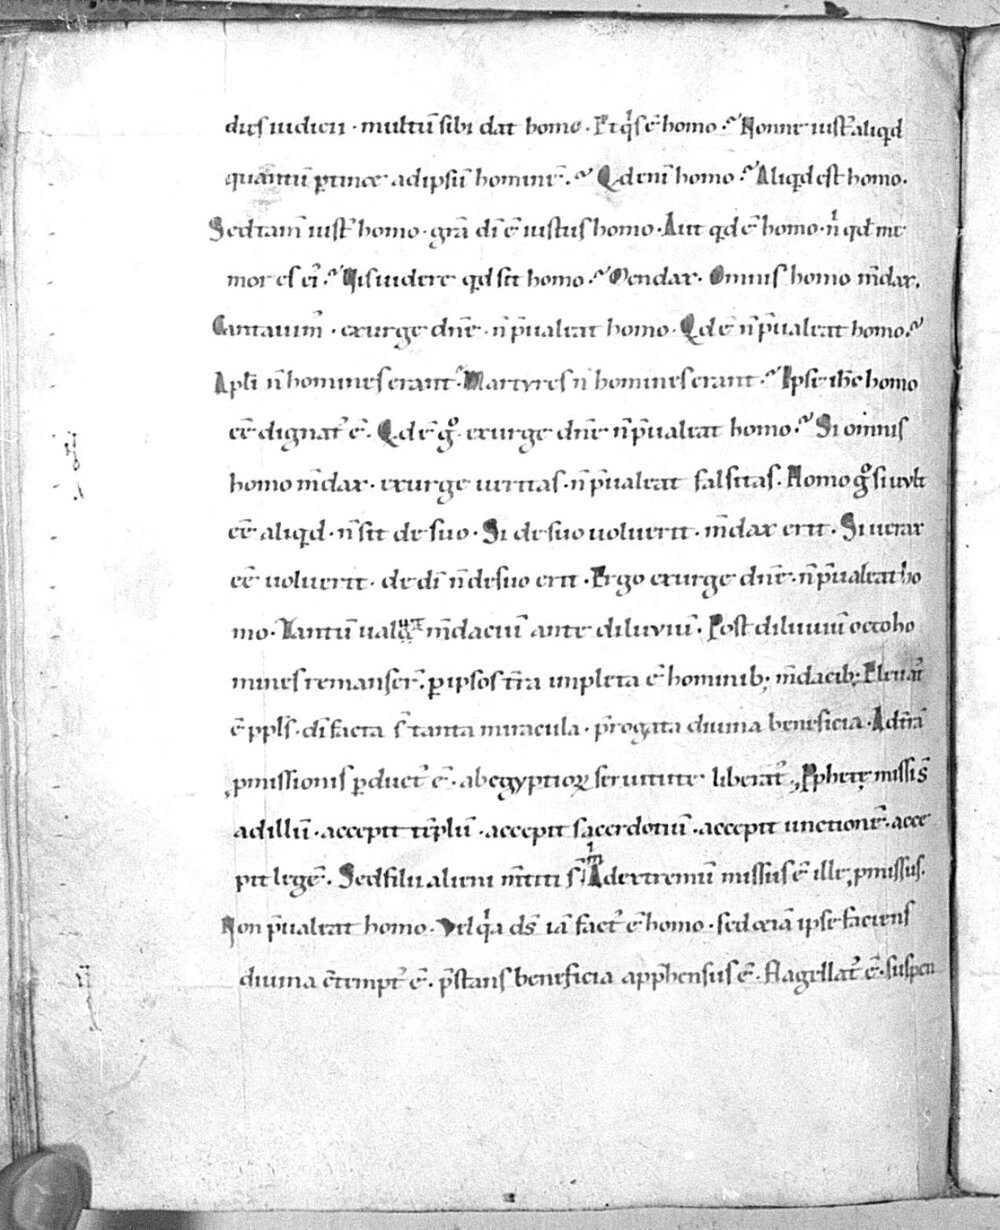 dies iudicii · multū sibi dat homo · Et qͥs ē homo · Nonne iust᷒ aliqͥd
quantū ꝑtinet ad ipsū hominē. Qđ enī homo · Aliqͥd est homo.
Sed tam̄ iust᷒ homo · gr̄a dī ē iustus homo · Aut qͥd ē homo · n̄ qđ me
mor es ei᷒ · Uis uidere qͥd sit homo · Mendax · Omnis homo m̄dax.
Cantauim᷒ · exurge dn̄e · n̄ p̄ualeat homo · Qđ ē n̄ p̄ualeat homo ·
Apl̄i n̄ homines erant · Martyres n̄ homines erant · Ipse ih̄c homo
ēē dignat᷒ ē. Qđ ē gͦ · exurge dn̄e n̄ p̄ualeat homo · Si omnis
homo m̄dax · exurge ueritas · n̄ p̄ualeat falsitas. Homo gͦ si uult
ēē aliqͥd · n̄ sit de suo · Si de suo uoluerit · m̄dax erit · Si uerax
ēē uoluerit · de dī n̄ de suo erit · Ergo exurge dn̄e · n̄ p̄ualeat ho
mo · Tantū ual m̄daciū ante diluuiū · Post diluuiū octo ho
mines remanser̄. ꝑ ipsos t̄ra impleta ē hominib; m̄dacib; Eleuat᷒
ē ppl̄s · dī facta s̄ tanta miracula · p̄rogata diuina beneficia · Ad t̄rā
ꝓmissionis ꝑduct᷒ ē · ab egyptioꝝ seruitute liberat᷒ · Ꝓphetę missi s̄
ad illū · accepit tēplū · accepit sacerdotiū · accepit unctionē · acce
pit legē · Sed filii alieni m̄titi s̄ m̄ Ad extremū missus ē ille ꝓmissus.
Non p̄ualeat homo · Vel qͥa ds̄ iā fact᷒ ē homo · sed etiā ipse faciens
diuina c̄tempt᷒ ē · p̄stans beneficia app̄hensus ē · flagellat᷒ ē · suspen